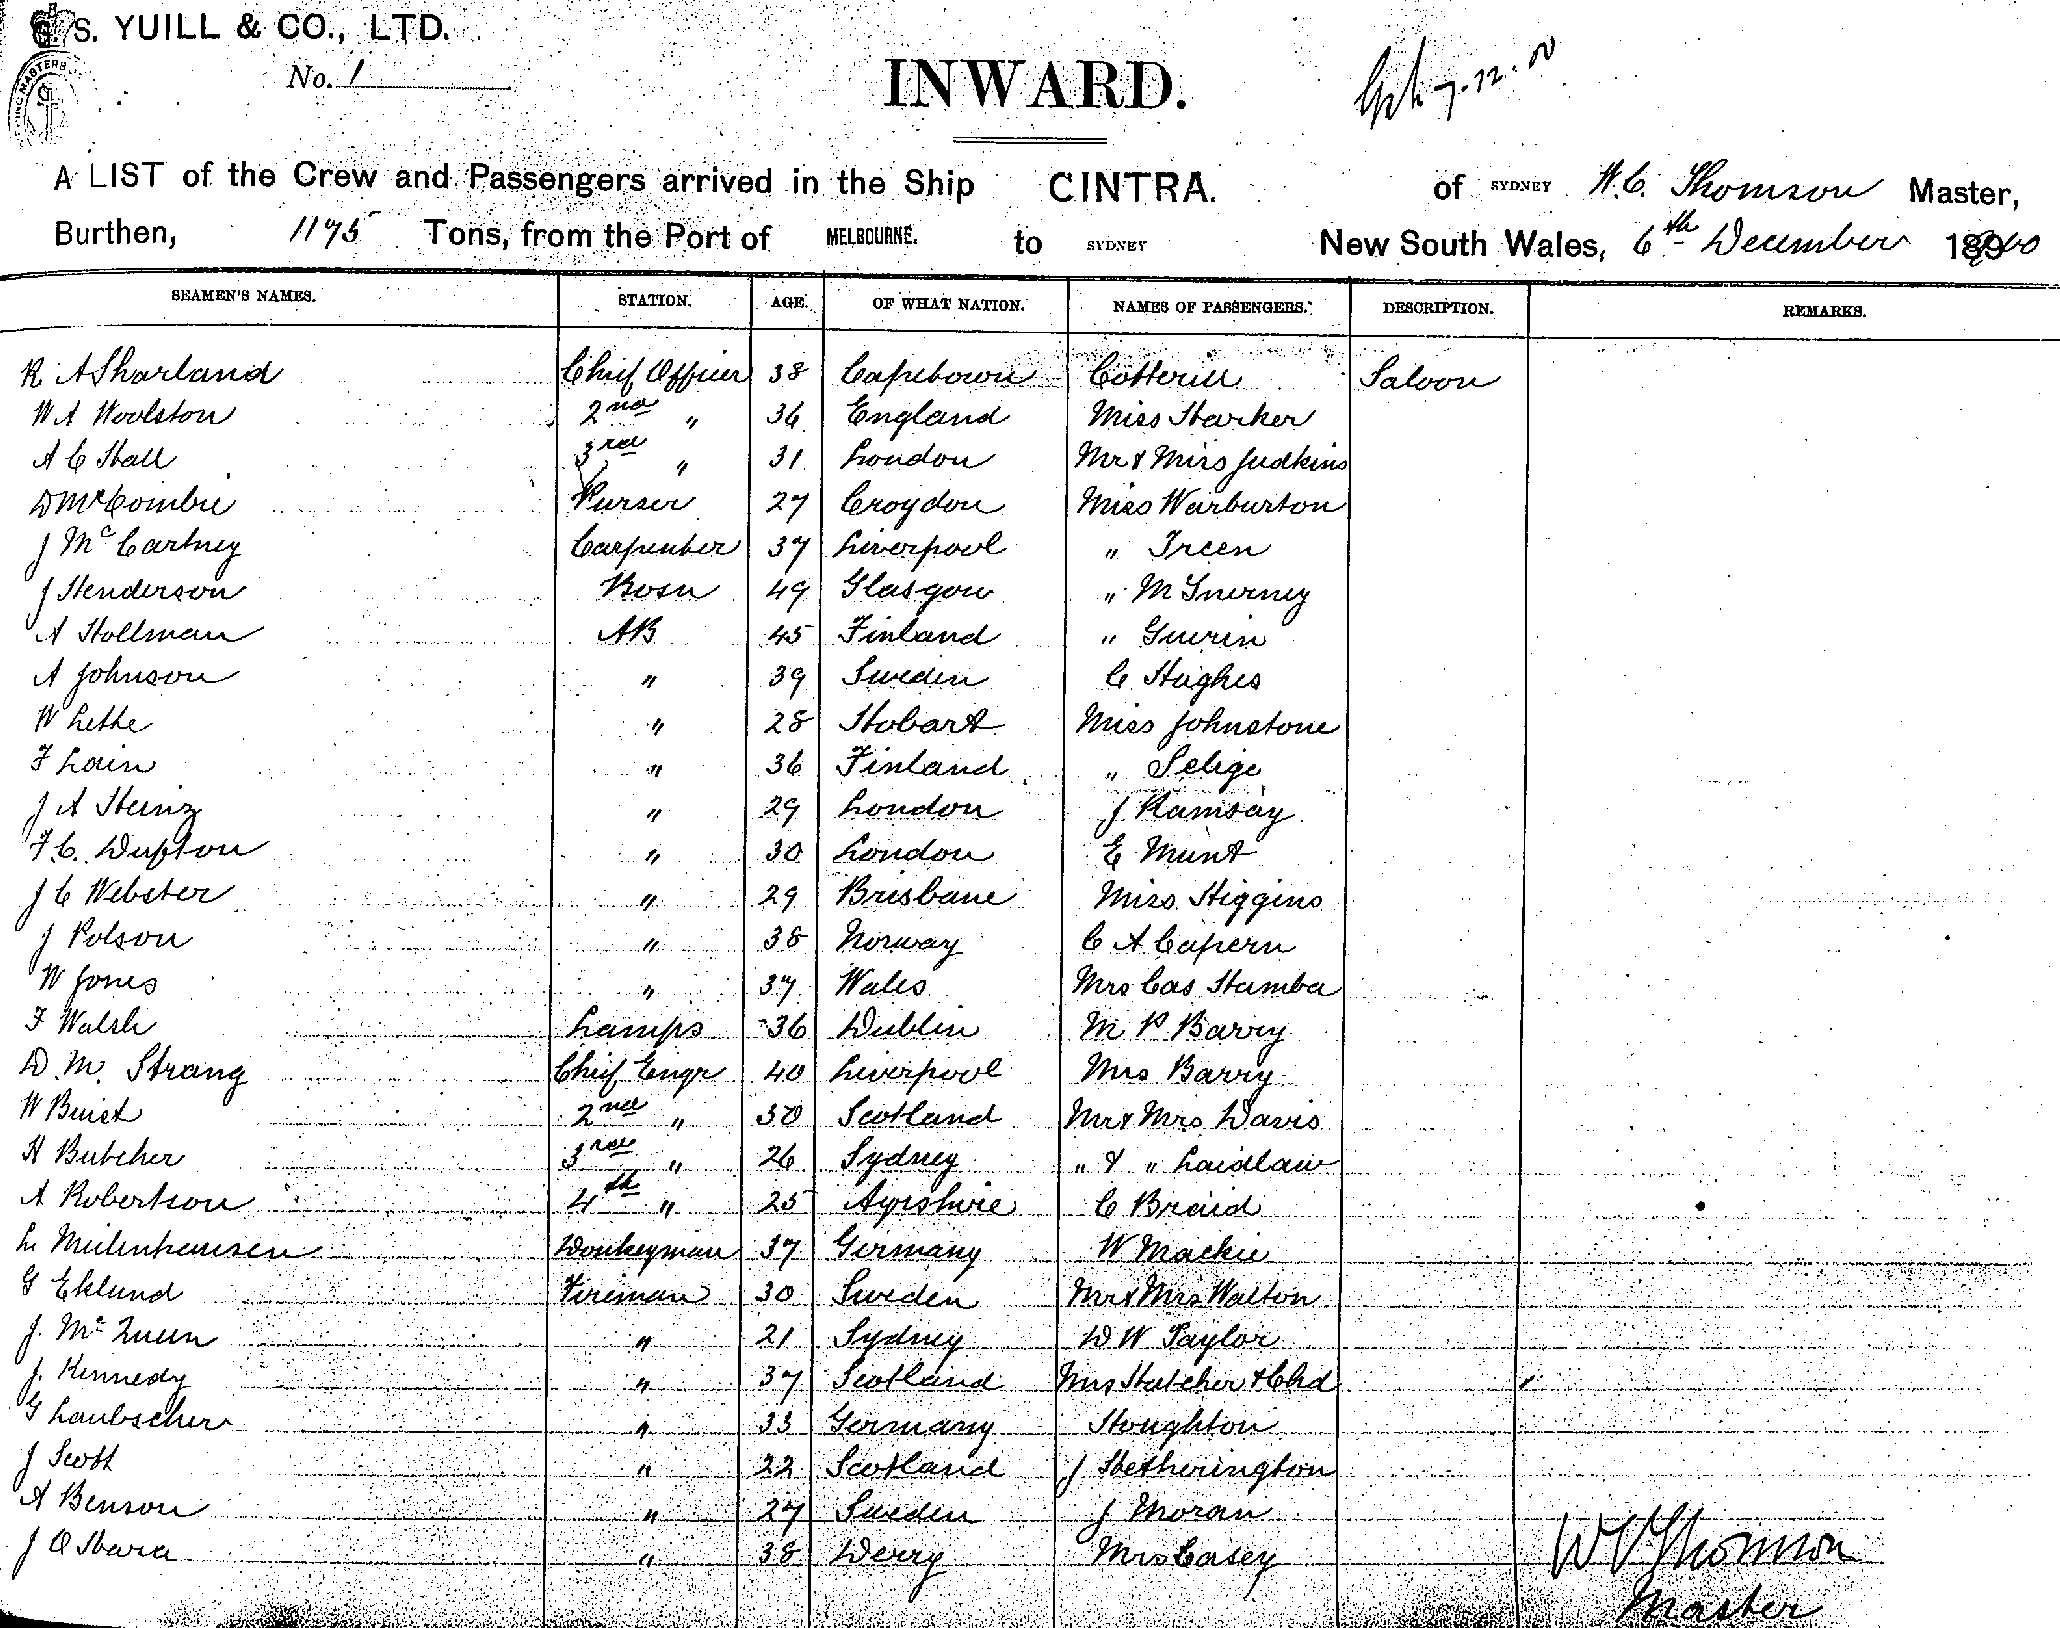 G. S. YUILL & CO., LTD.
No. 1
INWARD.
7.12.00
A LIST of the Crew and Passengers arrived in the Ship CINTRA. of SYDNEY W. C. Thomson Master,
Burthen, 1175 Tons, from the Port of MELBOURNE. to SYDNEY New South Wales, 6th December 1900
SEAMEN'S NAMES. STATION. AGE. OF WHAT NATION. NAMES OF PASSENGERS. DESCRIPTION. REMARKS.
R A Sharland Chief Officer 38 Capetown Cotterill Saloon
W A Woolston 2nd " 36 England Miss Harker
A C Hall 3rd " 31 London Mr & Mrs Judkins
D McCombie Purser 27 Croydon Miss Warburton
J McCartney Carpenter 37 Liverpool " Treen
J Henderson Bosn 49 Glasgow " McInerney
A Hollman AB 45 Finland " Guerin
A Johnson " 39 Sweden C Hughes
W Lethe " 28 Hobart Miss Johnstone
F Lain " 36 Finland " Selige
J A Heinz " 29 London J Ramsay
F. C. Dufton " 30 London E Munt
J C Webster " 29 Brisbane Miss Higgins
J Polson " 38 Norway C A Capern
W Jones " 37 Wales Mrs Cas Hamba
F Walsh Lamps 36 Dublin M P Barry
D. M. Strang Chief Engr 40 Liverpool Mrs Barry
W Buist 2nd " 30 Scotland Mr & Mrs Davis
H Butcher 3rd " 26 Sydney " & " Laidlaw
A Robertson 4th " 25 Ayrshire C Braid
L Meilenhausen Donkeyman 37 Germany W Mackie
G Eklund Fireman 30 Sweden Mr & Mrs Walton
J. McQueen " 21 Sydney D W Taylor
J. Kennedy " 37 Scotland Mrs Hatcher & Chd
G Laubscher " 33 Germany Houghton
J Scott " 22 Scotland J Hetherington
A Benson " 27 Sweden J Moran
J O Hara " 38 Derry Mrs Casey
W C Thomson
Master